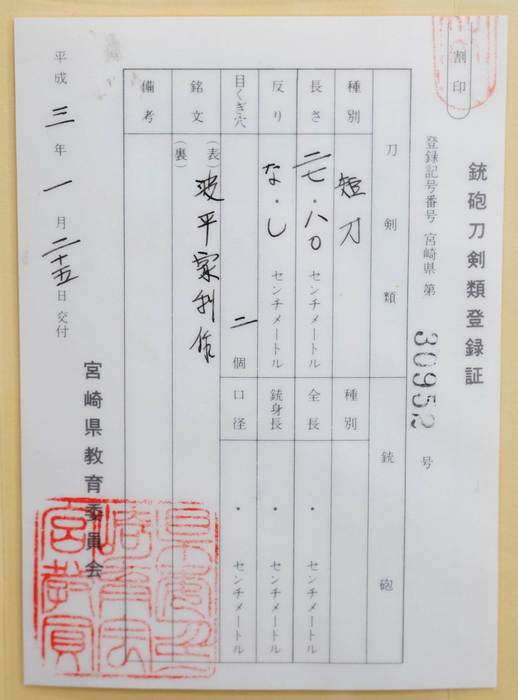 割印
銃砲刀剣類登録証
登録記号番号 宮崎県 第 30952 号
刀剣類
銃砲
種別
短刀
種別
長さ
二七・八〇 センチメートル
全長
・ センチメートル
反り
な・し センチメートル
銃身長
・ センチメートル
目くぎ穴
二 個
口径
・ センチメートル
銘文
(表) 波平家利作
(裏)
備考
平成 三 年 一 月 二十五 日 交付
宮崎県教育委員会